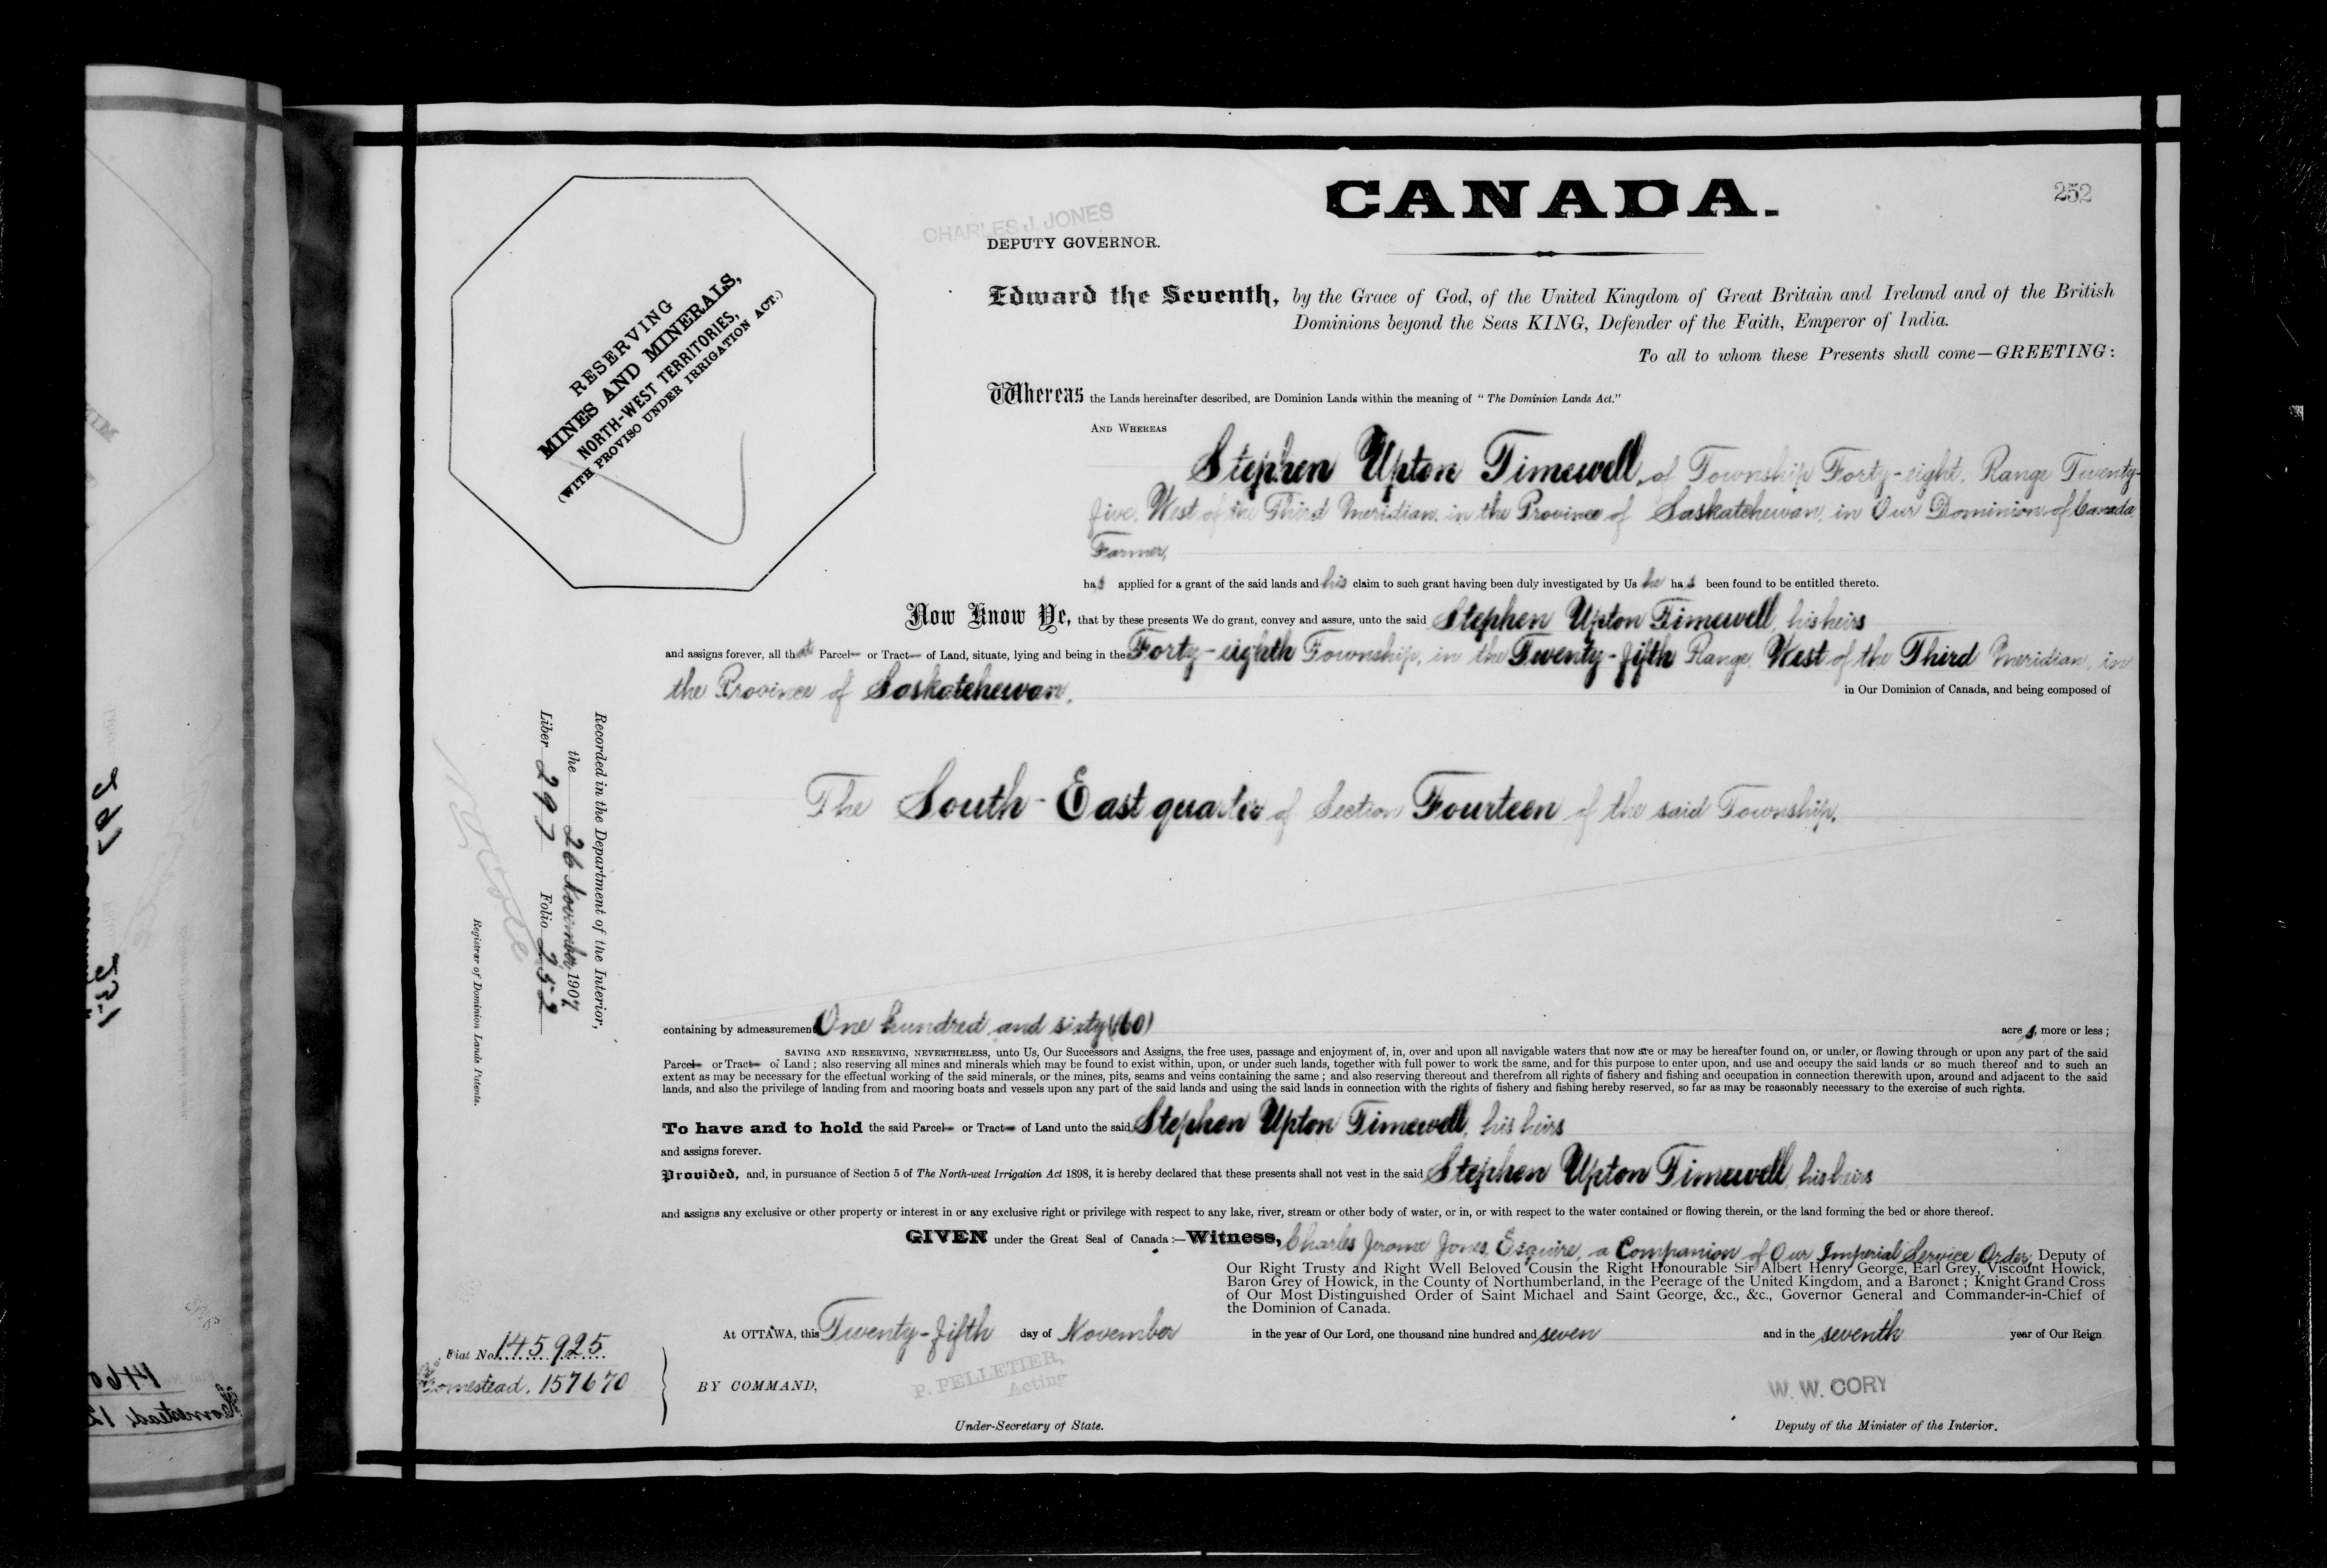 CANADA.
252
CHARLES J. JONES
DEPUTY GOVERNOR.
RESERVING
MINES AND MINERALS,
NORTH-WEST TERRITORIES,
(WITH PROVISO UNDER IRRIGATION ACT.)
Edward the Seventh, by the Grace of God, of the United Kingdom of Great Britain and Ireland and of the British
Dominions beyond the Seas KING, Defender of the Faith, Emperor of India.
To all to whom these Presents shall come—GREETING:
Whereas the Lands hereinafter described, are Dominion Lands within the meaning of "The Dominion Lands Act."
AND WHEREAS
Stephen Upton Timewell, of Township Forty-eight, Range Twenty-
five, West of the Third Meridian, in the Province of Saskatchewan, in Our Dominion of Canada,
Farmer,
has applied for a grant of the said lands and his claim to such grant having been duly investigated by Us he has been found to be entitled thereto.
Now Know Ye, that by these presents We do grant, convey and assure, unto the said Stephen Upton Timewell, his heirs
and assigns forever, all that Parcel or Tract of Land, situate, lying and being in the Forty-eighth Township, in the Twenty-fifth Range, West of the Third Meridian, in
the Province of Saskatchewan, in Our Dominion of Canada, and being composed of
The South-East quarter of Section Fourteen of the said Township.
Recorded in the Department of the Interior,
the 26 November 1907
Liber 297 Folio 252
Registrar of Dominion Lands Patents.
containing by admeasurement One hundred and sixty (160) acres, more or less;
SAVING AND RESERVING, NEVERTHELESS, unto Us, Our Successors and Assigns, the free uses, passage and enjoyment of, in, over and upon all navigable waters that now are or may be hereafter found on, or under, or flowing through or upon any part of the said
Parcel or Tract of Land; also reserving all mines and minerals which may be found to exist within, upon, or under such lands, together with full power to work the same, and for this purpose to enter upon, and use and occupy the said lands or so much thereof and to such an
extent as may be necessary for the effectual working of the said minerals, or the mines, pits, seams and veins containing the same; and also reserving thereout and therefrom all rights of fishery and fishing and occupation in connection therewith upon, around and adjacent to the said
lands, and also the privilege of landing from and mooring boats and vessels upon any part of the said lands and using the said lands in connection with the rights of fishery and fishing hereby reserved, so far as may be reasonably necessary to the exercise of such rights.
To have and to hold the said Parcel or Tract of Land unto the said Stephen Upton Timewell, his heirs
and assigns forever.
Provided, and, in pursuance of Section 5 of The North-west Irrigation Act 1898, it is hereby declared that these presents shall not vest in the said Stephen Upton Timewell, his heirs
and assigns any exclusive or other property or interest in or any exclusive right or privilege with respect to any lake, river, stream or other body of water, or in, or with respect to the water contained or flowing therein, or the land forming the bed or shore thereof.
GIVEN under the Great Seal of Canada:—Witness, Charles Jerome Jones, Esquire, a Companion of Our Imperial Service Order, Deputy of
Our Right Trusty and Right Well Beloved Cousin the Right Honourable Sir Albert Henry George, Earl Grey, Viscount Howick,
Baron Grey of Howick, in the County of Northumberland, in the Peerage of the United Kingdom, and a Baronet; Knight Grand Cross
of Our Most Distinguished Order of Saint Michael and Saint George, &c., &c., Governor General and Commander-in-Chief of
the Dominion of Canada.
At OTTAWA, this Twenty-fifth day of November in the year of Our Lord, one thousand nine hundred and seven and in the seventh year of Our Reign
Fiat No. 145925
Homestead. 157670
BY COMMAND,
P. PELLETIER,
Acting
Under-Secretary of State.
W. W. CORY
Deputy of the Minister of the Interior.